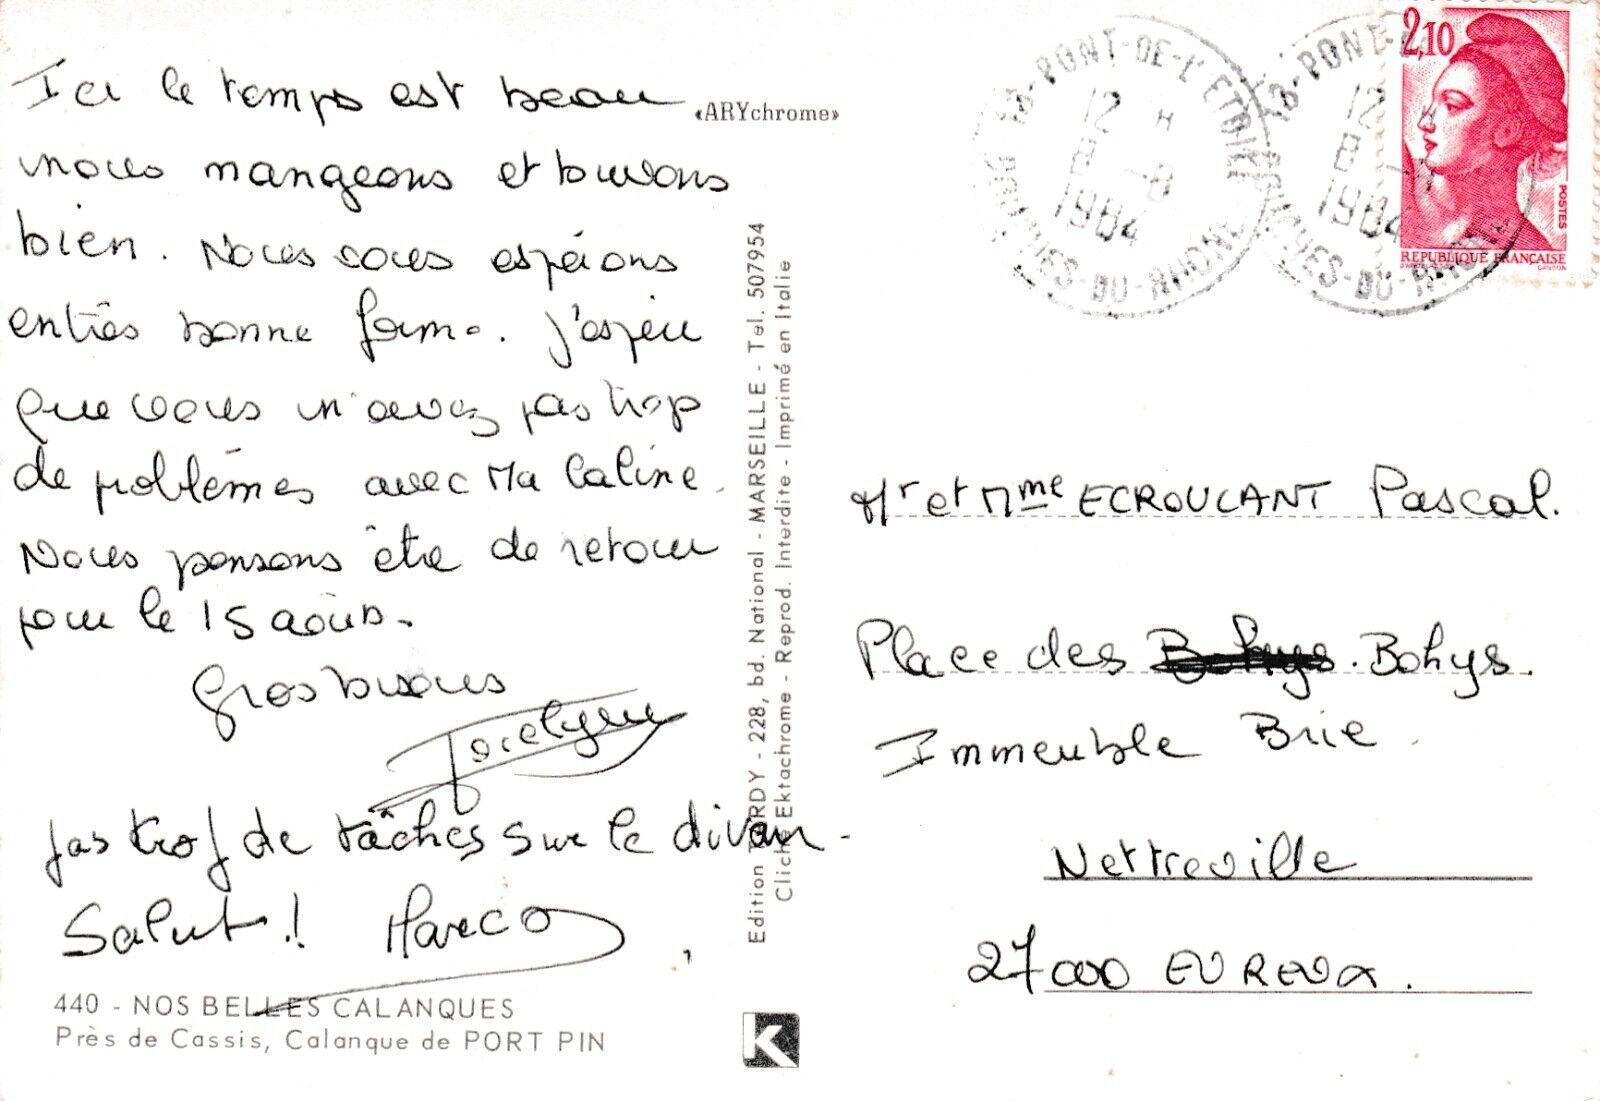 Ici le temps est beau
nous mangeons et buvons
bien. Nous vous espérons
entrés bonne forme. J'espère
que vous n'avez pas trop
de problèmes avec Ma Caline.
Nous pensons être de retour
pour le 15 août.
Gros bisous
Jocelyne
pas trop de tâches sur le divan.
Salut! Marco
440 - NOS BELLES CALANQUES
Près de Cassis, Calanque de PORT PIN
«ARYchrome»
Edition TARDY - 228, bd. National - MARSEILLE - Tel. 507954
Cliché Ektachrome - Reprod. Interdite - Imprimé en Italie
K
13-PONT-DE-L'ETOILE
12 H
8 -8
1984
BOUCHES-DU-RHONE
13-PONT-
12 H
8 -8
1984
BOUCHES-DU-RHONE
2,10
POSTES
REPUBLIQUE FRANÇAISE
GANDON
Mr et Mme ECROUCANT Pascal.
Place des Bohys. Bohys.
Immeuble Brie.
Nettreville
27000 EVREUX.